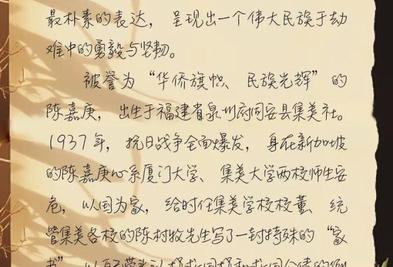 最朴素的表达，呈现出一个伟大民族于劫
难中的勇毅与坚韧。
被誉为“华侨旗帜、民族光辉”的
陈嘉庚，出生于福建省泉州府同安县集美社。
1937年，抗日战争全面爆发，身在新加坡
的陈嘉庚心系厦门大学、集美大学两校师生安
危，以国为家，给时任集美学校校董、统
管集美各校的陈村牧先生写了一封特殊的“家
书”，以